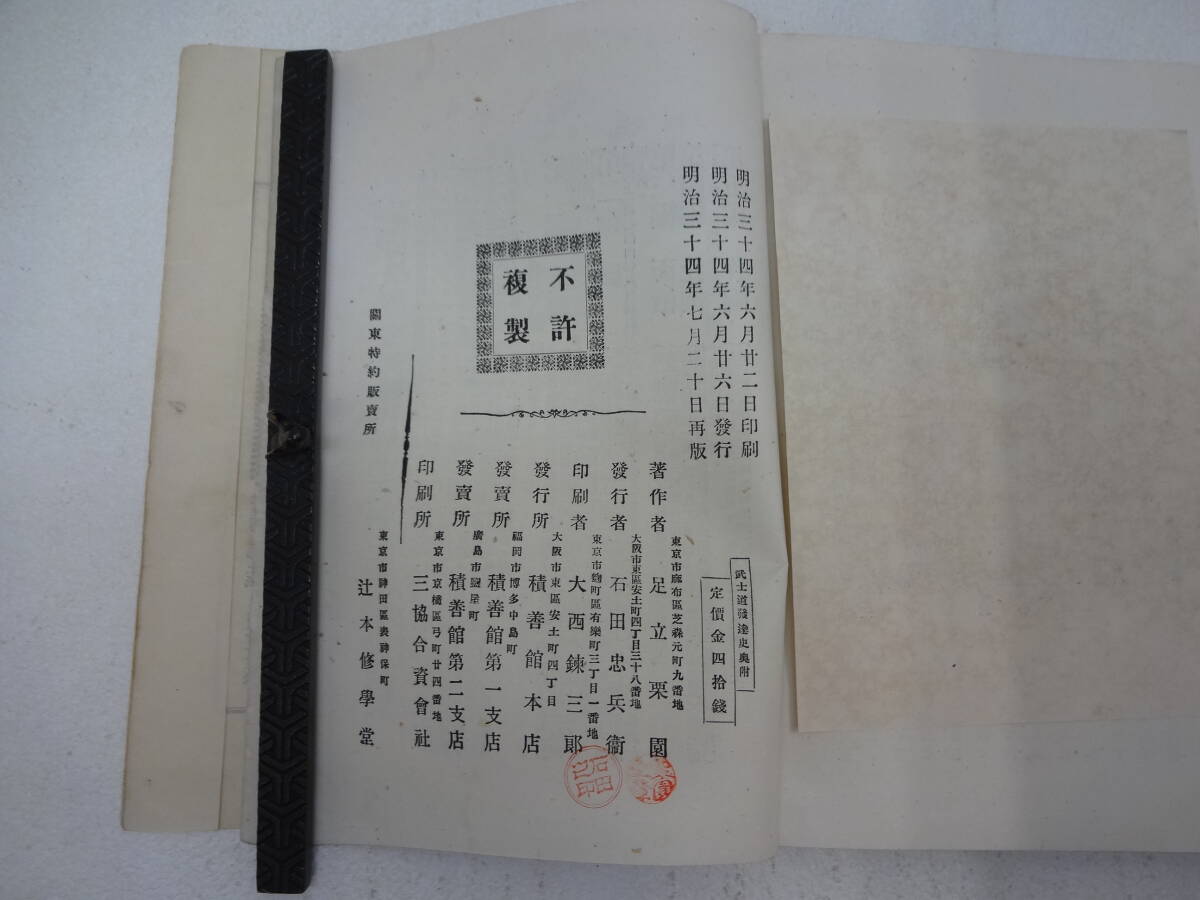 明治三十四年六月廿二日印刷
明治三十四年六月廿六日發行
明治三十四年七月二十日再版
不許
複製
武士道發達史奥附
定價金四拾錢
東京市麻布區芝森元町九番地
著作者 足立栗園
大阪市東區安土町四丁目三十八番地
發行者 石田忠兵衞
東京市麹町區有樂町三丁目一番地
印刷者 大西鍊三郎
大阪市東區安土町四丁目
發行所 積善館本店
福岡市博多中島町
發賣所 積善館第一支店
廣島市塩屋町
發賣所 積善館第二支店
東京市京橋區弓町廿四番地
印刷所 三協合資會社
關東特約販賣所
東京市神田區表神保町
辻本修學堂